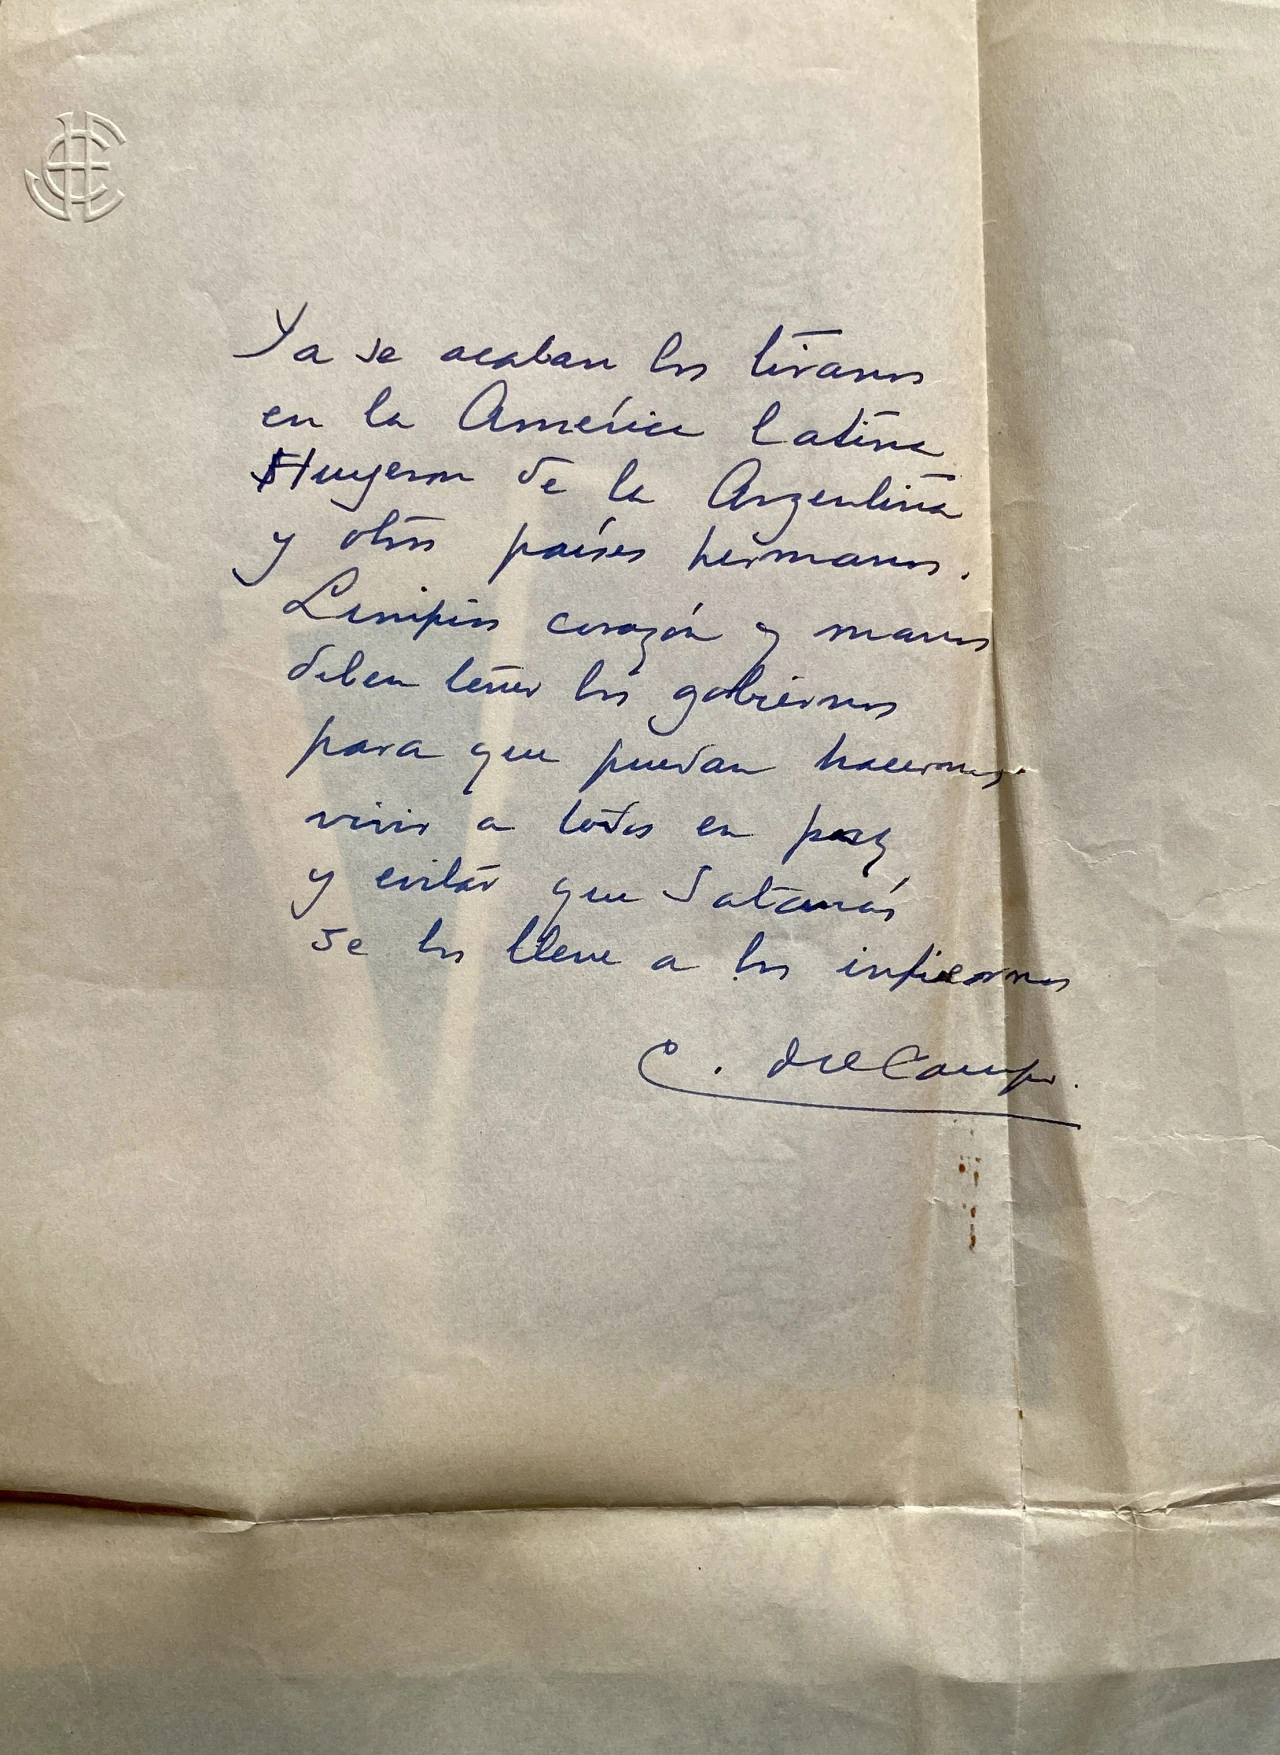 Ya se acaban los tiranos
en la América latina
Huyeron de la Argentina
y otros países hermanos.
Limpios corazón y manos
deben tener los gobiernos
para que puedan hacernos
vivir a todos en paz
y evitar que Satanás
se los lleve a los infiernos
C. del Campo.